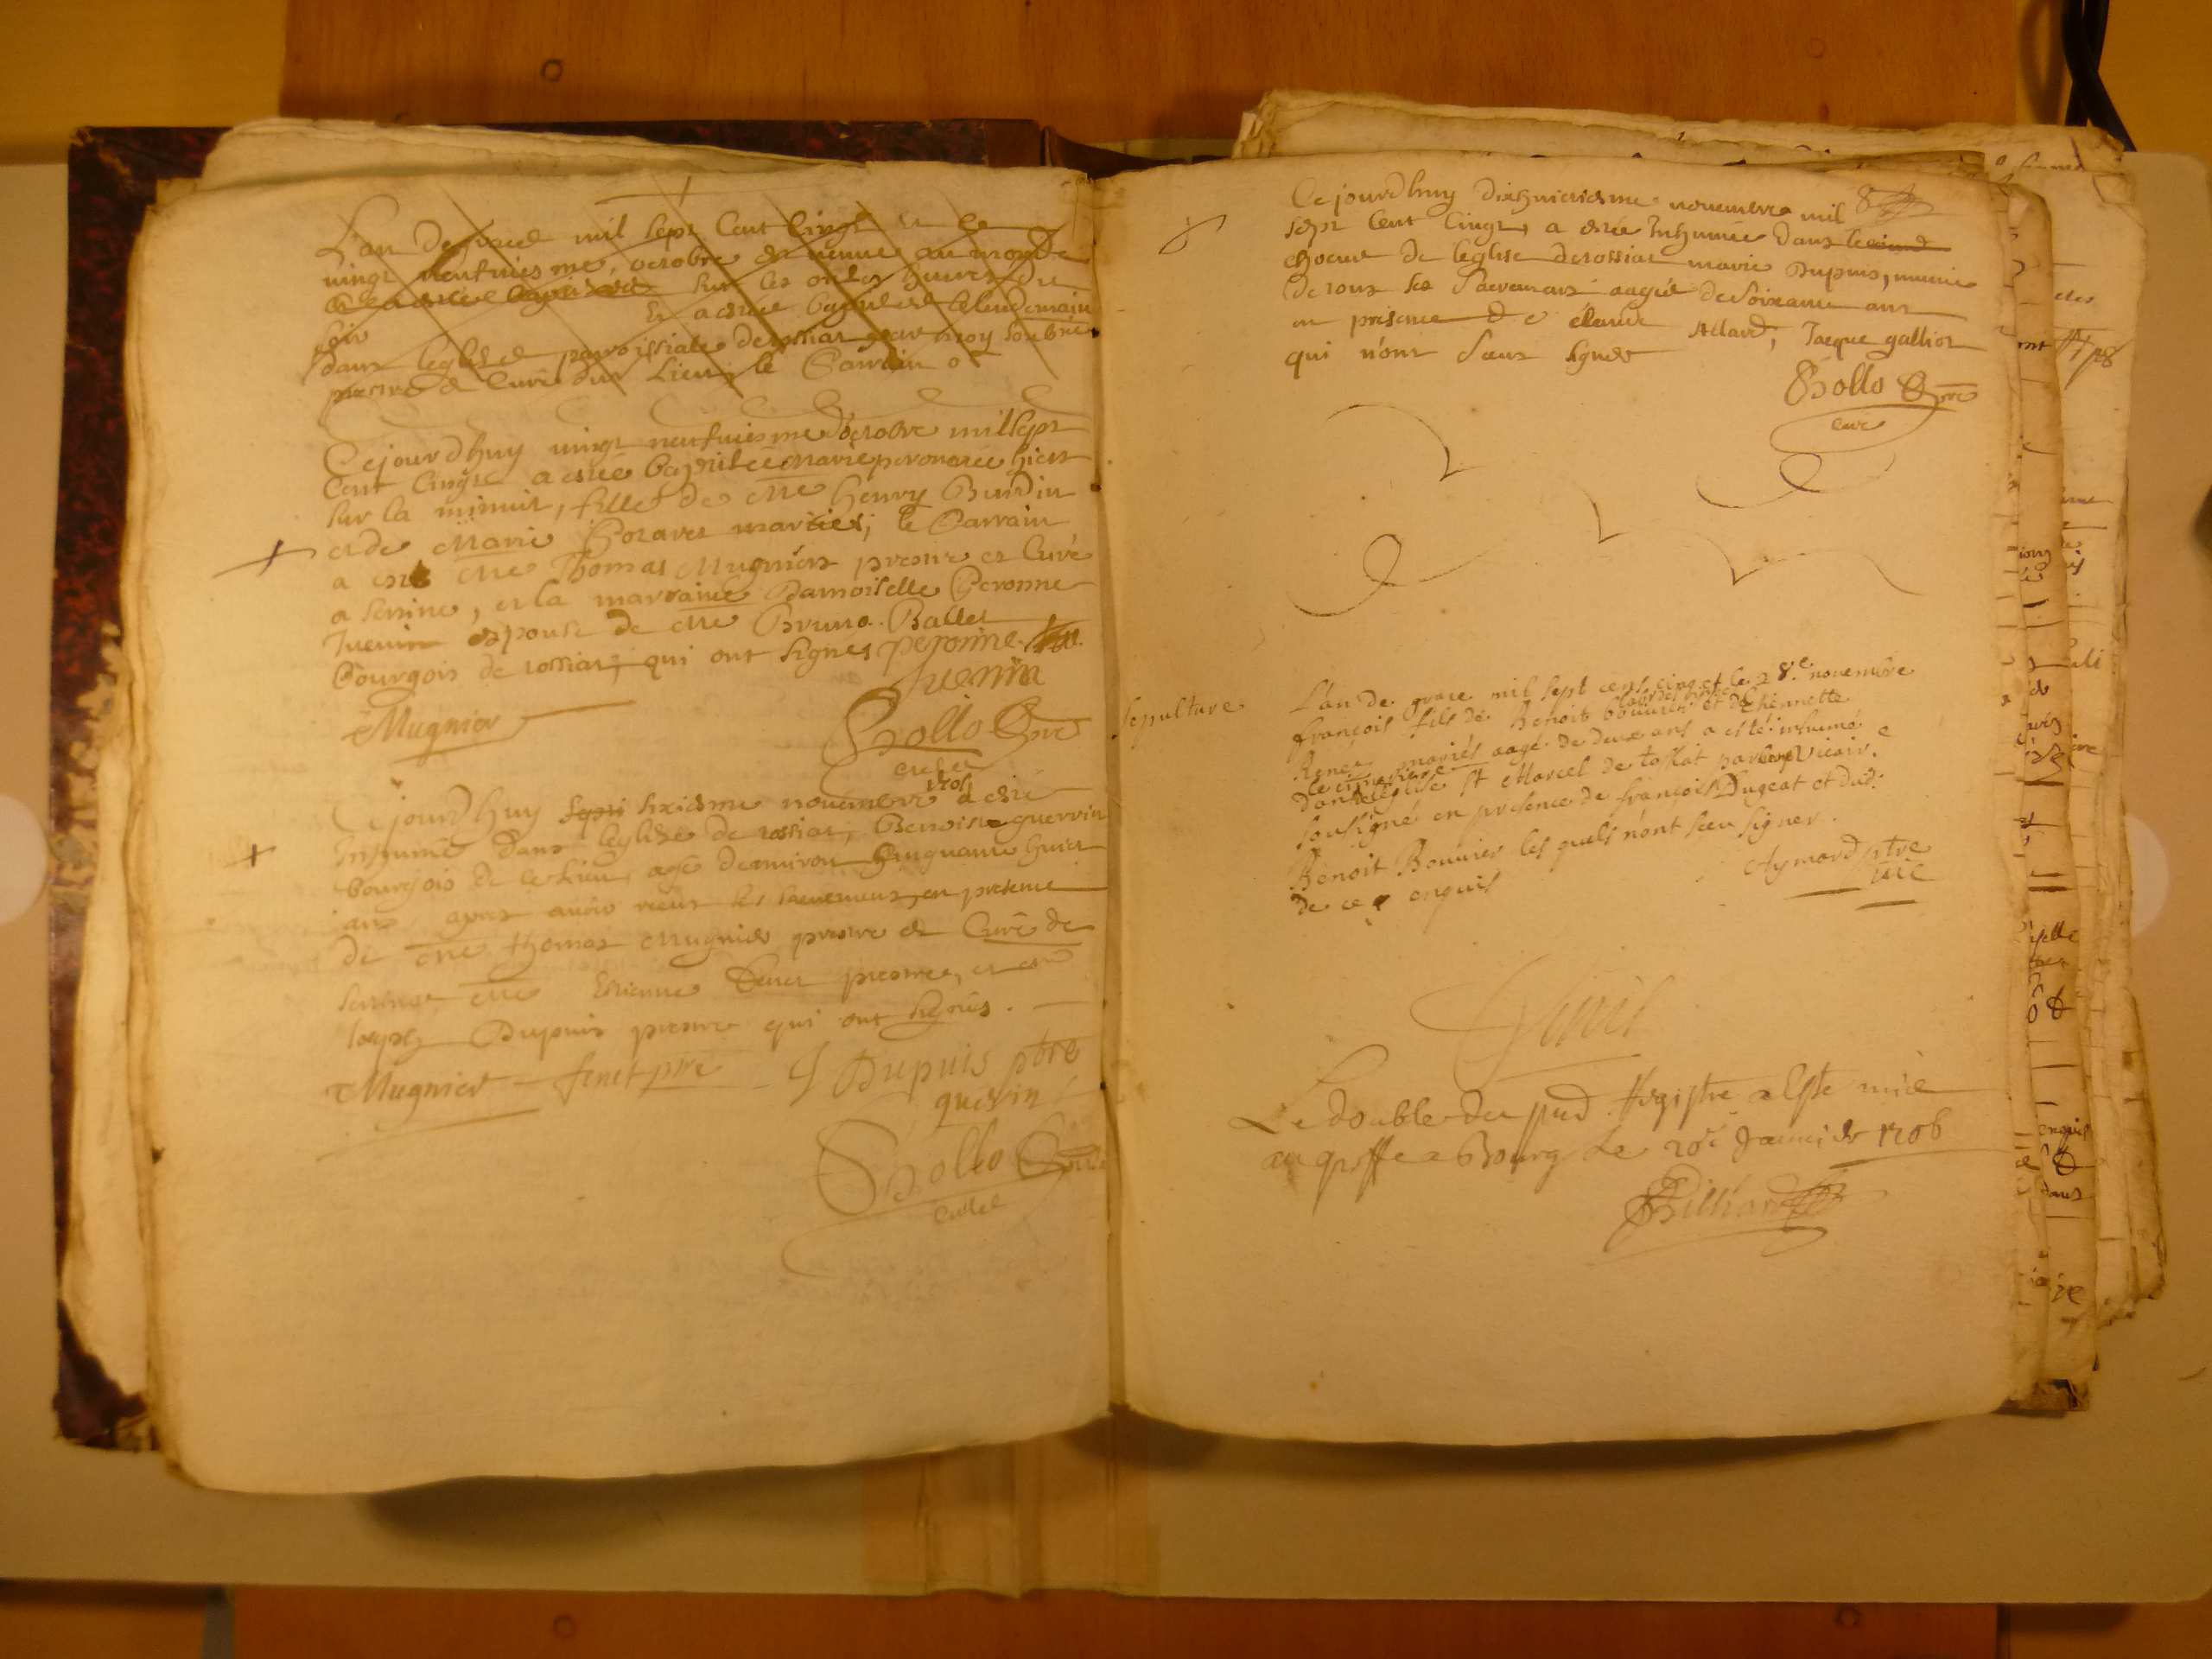 L'an de grace mil sept Cent Cinqt et le
vingt neufuiesme, octobre est venue au monde
sur les onzes heures du
soir et a estée baptisée le lendemain
dans leglise parroissiale de tossiat par moy soubné
prestre & Curé dud Lieu, le Parrain
Cejourdhuy vingt neufuiesme doctobre mil sept
Cent Cinqte a estée baptisée Marie peronne née hiert
sur la minuit, fille de Me henry Burdin
et de Marie mariés; le Parrain
a esté Me Thomas Mugnier prestre et Curé
a serrine, et la marraine Damoiselle Peronne
Juenin espouse de Me Bruno Ballet
Bourgois de tossiat, qui ont signes peronne
Juenin
Mugnier
Bollo Ptre
curee
1705
Cejourdhuy sixiesme novembre a esté
Inhumé dans leglise de tossiat, Benoist guerrin
bourgois de ce Lieu, agé denuiron Cinquante huict
ans, apres auoir receu les sacremens, en presence
de Me thomas Mugnier prestre et Curé de
serrine, Me Estienne prestre, et Me
Joseph Dupuis prestre qui ont signés.
Mugnier ptre J Dupuis ptre
guerin
Bollo Ptre
curee
Cejourdhuy dixhuictiesme nouembre mil 8
sept Cent Cinqt, a estée Inhumée Dans le
choeur De leglise de tossiat marie Dupuis, munie
de tous les Sacremans aagée de Soixante ans
en presence de Allard, Jaque gallion
qui n'ont Sceus signer
Bollo Ptre
cure
sepulture
L'an de grace mil sept cens cinq et le 28.e nouembre
françois fils de Benoit Bouuier et de Thiennette
mariés aagé de deux ans a esté inhumé
le cimetiere
dans leglise St Marcel de tossiat par Vicaire
sousigné en presence de françois Dugeat et dud.
Benoit Bouuier les quels n'ont sceu signer.
de ce enquis
Aymard ptre
vic
Le double du pnt Registre a Este mis
au greffe a Bourg Le 20e Januier 1706
Billiard